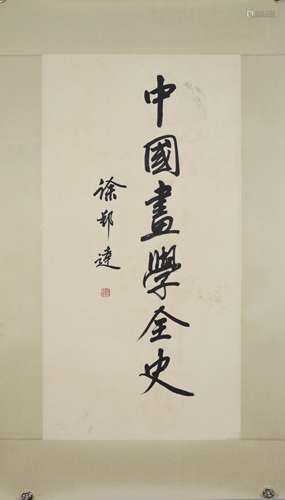 中國畫學全史
徐邦達